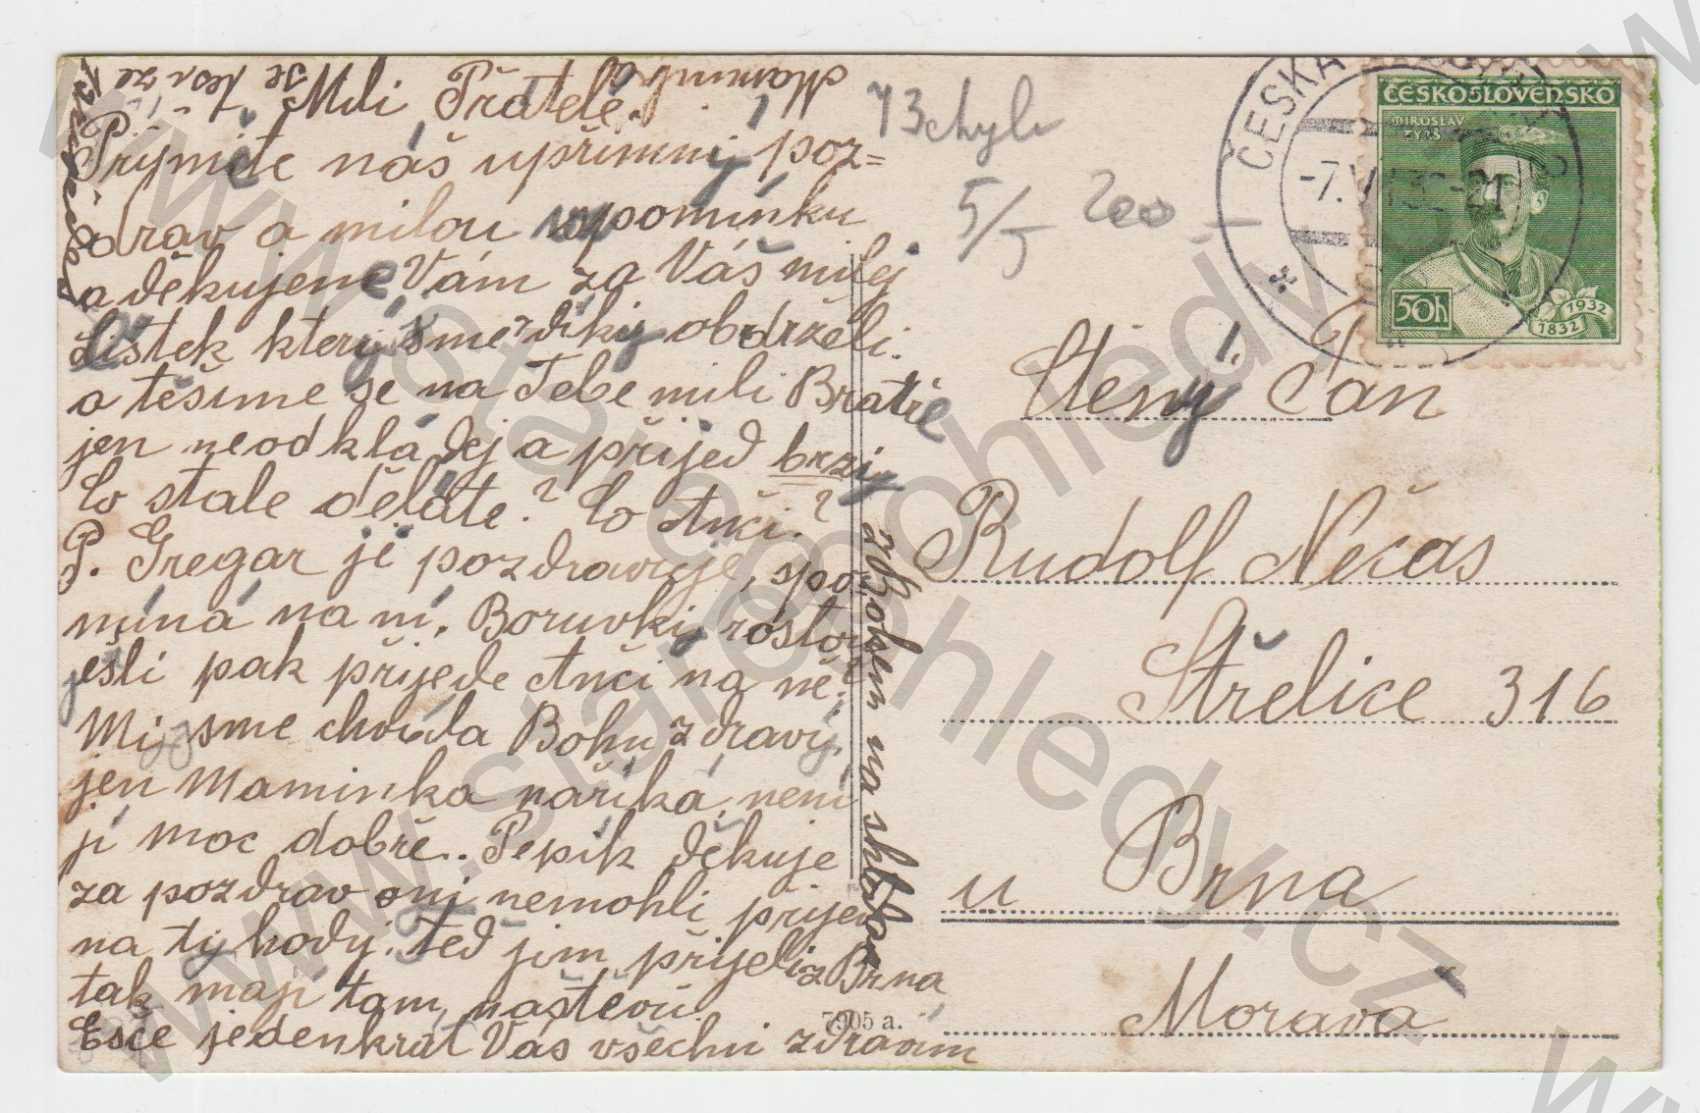 Mili Přatelé!
Přijměte náš upřimný poz=
drav a milou vzpomínku
a děkujeme Vám za Váš milej
listek který sme z díky obdrželi.
a těšíme se na Tebe mili Bratře
jen neodkládej a přijeď brzy
Co stale děláte? Co Anči?
P. Gregar ji pozdravuje, spo
míná na ni. Boruvky rostou
jesli pak přijede Anči na ně?
Mi sme chvála Bohu zdraví,
jen Maminka naříká, není
jí moc dobře.. Pepík děkuje
za pozdrav oni nemohli přijet
na ty hody. teď jim přijeli z Brna
tak mají tam naštevu.
Ešče jedenkrát Vás všechni zdravím
z Bohem na shledanou
Maminka
73 chyb
5/5 200,–
ČESKÁ
-7.VII.32-21
ČESKOSLOVENSKO
MIROSLAV
TYRŠ
50h
1832
1932
Ctěný Pan
Rudolf Nečas
Střelice 316
u Brna
Morava
7905 a.
www.starepohledy.cz
www.starepohledy.cz